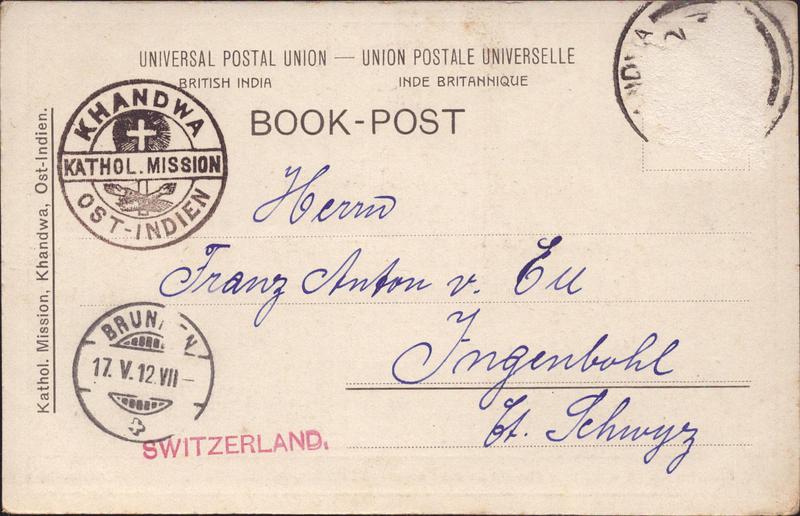 UNIVERSAL POSTAL UNION — UNION POSTALE UNIVERSELLE
BRITISH INDIA INDE BRITANNIQUE
BOOK-POST
KHANDWA
KATHOL. MISSION
OST-INDIEN
Kathol. Mission, Khandwa, Ost-Indien.
Herrn
Franz Anton v. Eu
Ingenbohl
Ct. Schwyz
17. V. 12. VII –
SWITZERLAND.